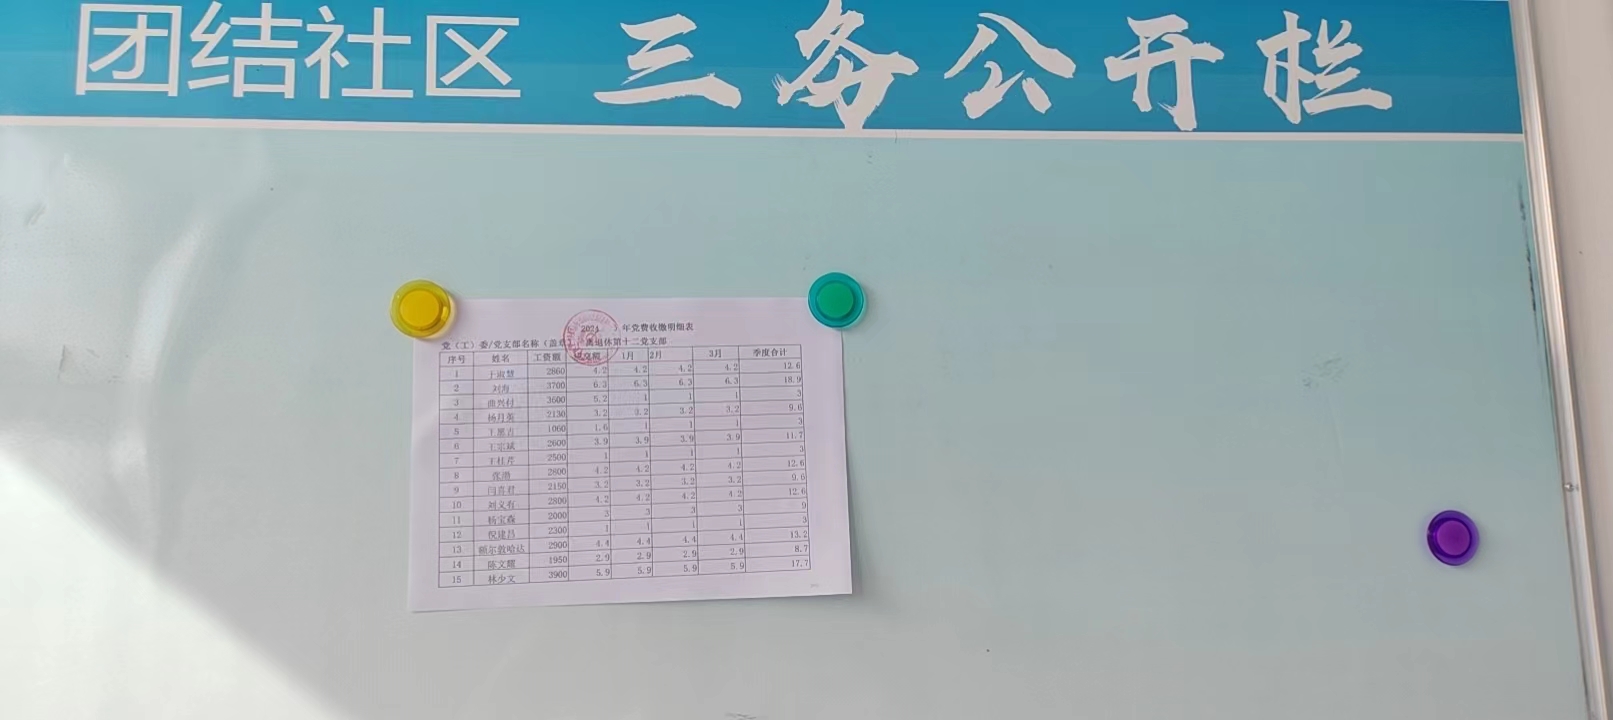 团结社区 三务公开栏
2024 年党费收缴明细表
党（工）委/党支部名称（盖章 离退休第十二党支部
序号 姓名 工资额 应交额 1月 2月 3月 季度合计
1 于淑慧 2860 4.2 4.2 4.2 4.2 12.6
2 刘海 3700 6.3 6.3 6.3 6.3 18.9
3 曲兴付 3600 5.2 1 1 1 3
4 杨月英 2130 3.2 3.2 3.2 3.2 9.6
5 1060 1.6 1 1 1 3
6 王宗斌 2600 3.9 3.9 3.9 3.9 11.7
7 王桂芹 2500 1 1 1 1 3
8 张渤 2800 4.2 4.2 4.2 4.2 12.6
9 闫喜君 2150 3.2 3.2 3.2 3.2 9.6
10 刘义有 2800 4.2 4.2 4.2 4.2 12.6
11 杨宝森 2000 3 3 3 3 9
12 倪建昌 2300 1 1 1 1 3
13 额尔敦哈达 2900 4.4 4.4 4.4 4.4 13.2
14 陈文耀 1950 2.9 2.9 2.9 2.9 8.7
15 林少文 3900 5.9 5.9 5.9 5.9 17.7